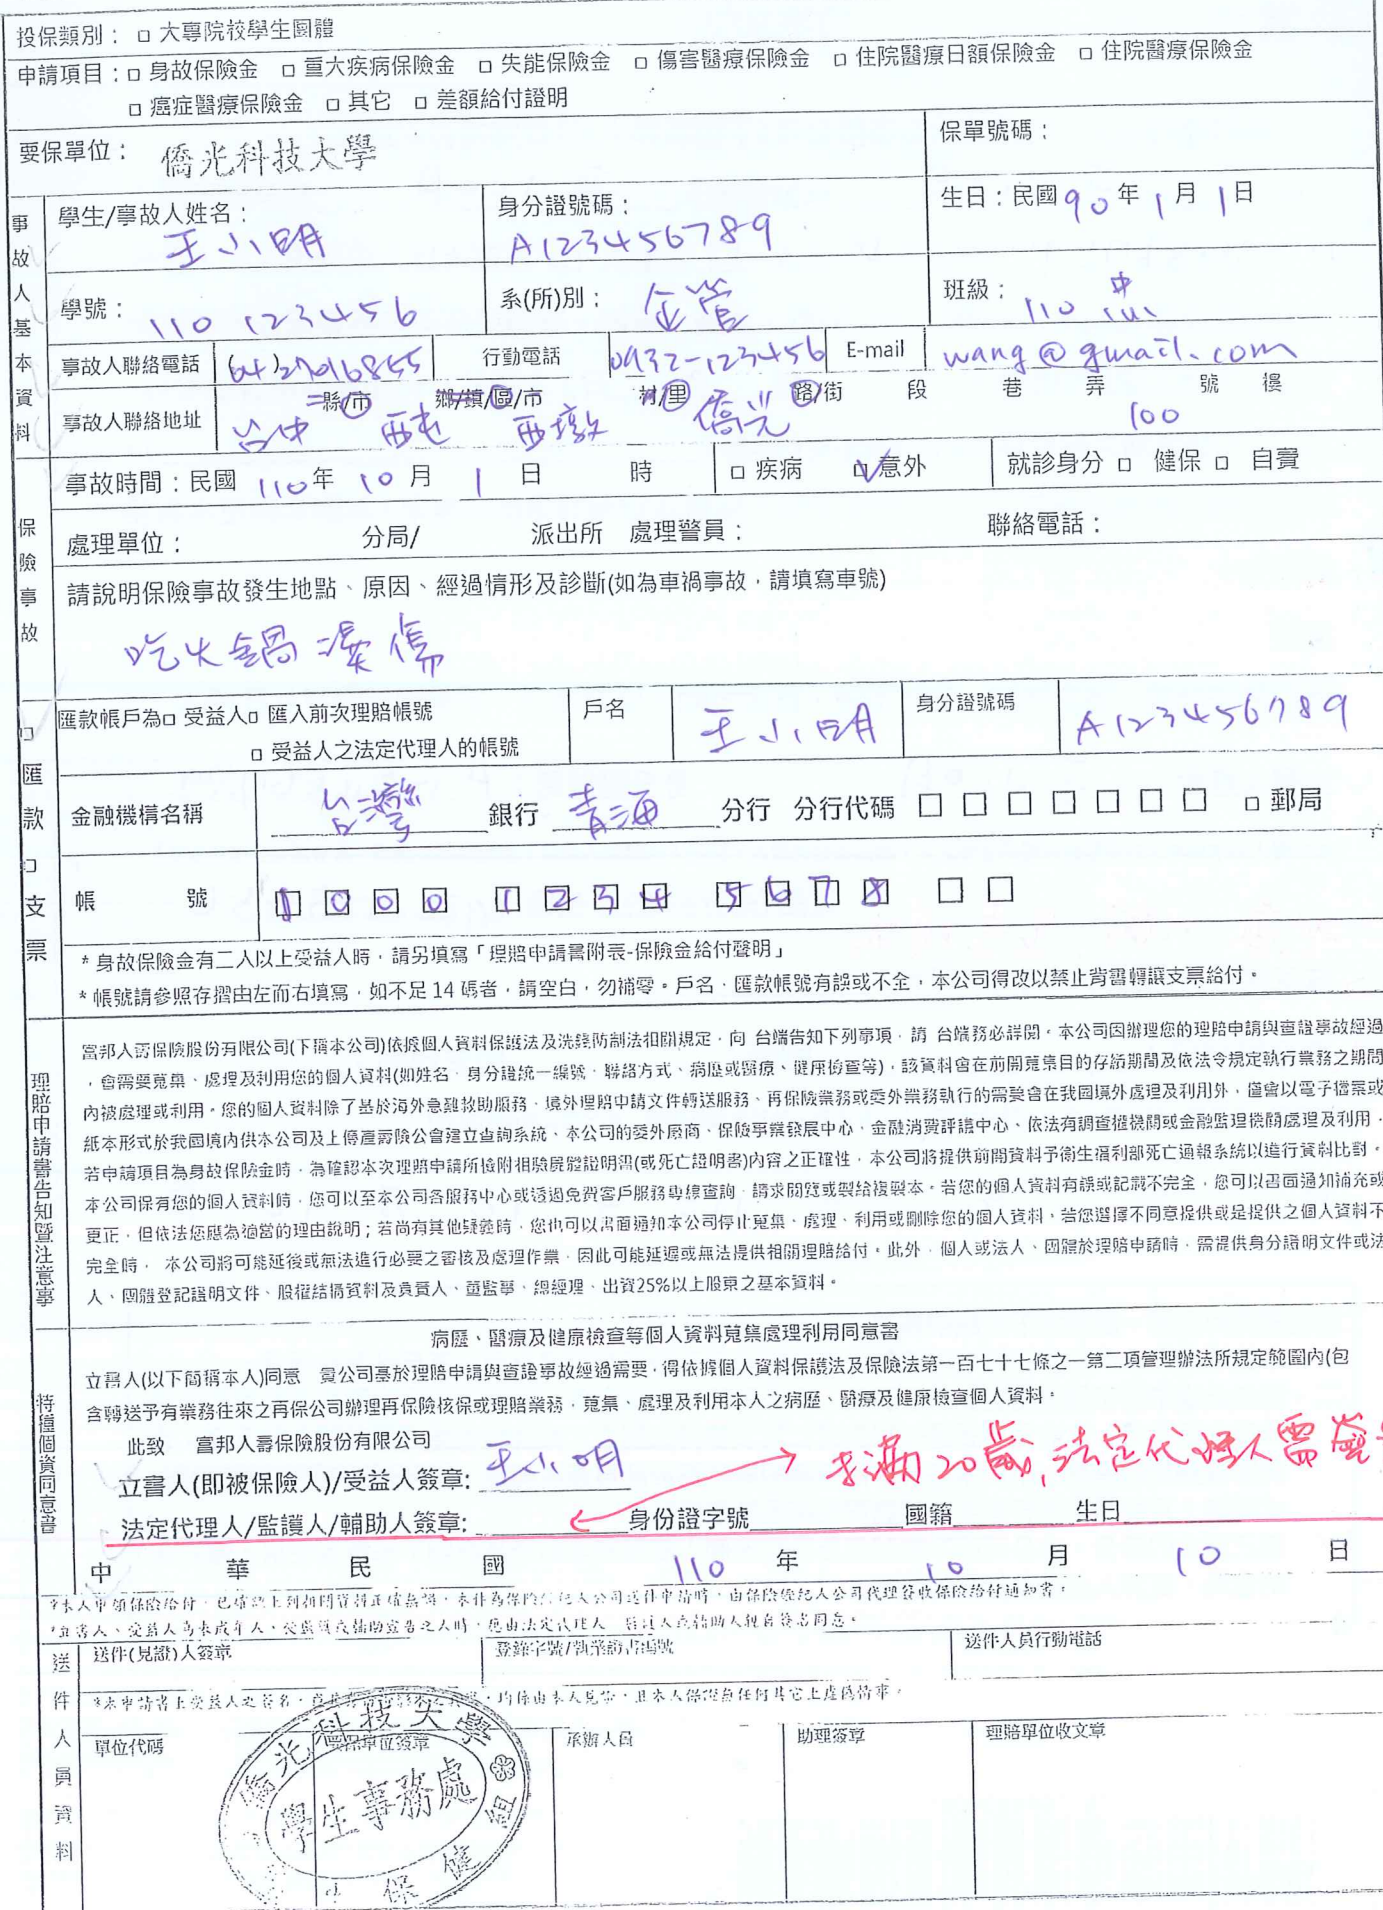 投保類別：□ 大專院校學生團體
申請項目：□ 身故保險金 □ 重大疾病保險金 □ 失能保險金 □ 傷害醫療保險金 □ 住院醫療日額保險金 □ 住院醫療保險金
□ 癌症醫療保險金 □ 其它 □ 差額給付證明
要保單位： 僑光科技大學 保單號碼：
事故人基本資料
學生/事故人姓名： 王小明 身分證號碼： A123456789 生日：民國 90 年 1 月 1 日
學號： 110123456 系(所)別： 企管 班級： 110 忠
事故人聯絡電話 (04)27016855 行動電話 0932-123456 E-mail wang@gmail.com
事故人聯絡地址 台中 縣/市 西屯 鄉/鎮/區/市 西墩 村/里 僑光 路/街 段 巷 弄 100 號 樓
保險事故
事故時間：民國 110 年 10 月 1 日 時 □ 疾病 ☑ 意外 就診身分 □ 健保 □ 自費
處理單位： 分局/ 派出所 處理警員： 聯絡電話：
請說明保險事故發生地點、原因、經過情形及診斷(如為車禍事故，請填寫車號)
吃火鍋燙傷
□ 匯款 □ 支票
匯款帳戶為□ 受益人□ 匯入前次理賠帳號 戶名 王小明 身分證號碼 A123456789
□ 受益人之法定代理人的帳號
金融機構名稱 台灣 銀行 青海 分行 分行代碼 □ □ □ □ □ □ □ □ 郵局
帳 號 0000 1234 5678 □ □
* 身故保險金有二人以上受益人時，請另填寫「理賠申請書附表-保險金給付聲明」
* 帳號請參照存摺由左而右填寫，如不足 14 碼者，請空白，勿補零。戶名、匯款帳號有誤或不全，本公司得改以禁止背書轉讓支票給付。
理賠申請書告知暨注意事
富邦人壽保險股份有限公司(下稱本公司)依據個人資料保護法及洗錢防制法相關規定，向 台端告知下列事項，請 台端務必詳閱。本公司因辦理您的理賠申請與查證事故經過
，會需要蒐集、處理及利用您的個人資料(如姓名、身分證統一編號、聯絡方式、病歷或醫療、健康檢查等)，該資料會在前開蒐集目的存續期間及依法令規定執行業務之期間
內被處理或利用。您的個人資料除了基於海外急難救助服務、境外理賠申請文件轉送服務、再保險業務或委外業務執行的需要會在我國境外處理及利用外，僅會以電子檔案或
紙本形式於我國境內供本公司及上傳產壽險公會建立查詢系統、本公司的委外廠商、保險事業發展中心、金融消費評議中心、依法有調查權機關或金融監理機關處理及利用，
若申請項目為身故保險金時，為確認本次理賠申請所檢附相驗屍體證明書(或死亡證明書)內容之正確性，本公司將提供前開資料予衛生福利部死亡通報系統以進行資料比對。
本公司保有您的個人資料時，您可以至本公司各服務中心或透過免費客戶服務專線查詢、請求閱覽或製給複製本。若您的個人資料有誤或記載不完全，您可以書面通知補充或
更正，但依法您應為適當的理由說明；若尚有其他疑義時，您也可以書面通知本公司停止蒐集、處理、利用或刪除您的個人資料。若您選擇不同意提供或是提供之個人資料不
完全時， 本公司將可能延後或無法進行必要之審核及處理作業，因此可能延遲或無法提供相關理賠給付。此外，個人或法人、團體於理賠申請時，需提供身分證明文件或法
人、團體登記證明文件、股權結構資料及負責人、董監事、總經理、出資25%以上股東之基本資料。
特種個資同意書
病歷、醫療及健康檢查等個人資料蒐集處理利用同意書
立書人(以下簡稱本人)同意 貴公司基於理賠申請與查證事故經過需要，得依據個人資料保護法及保險法第一百七十七條之一第二項管理辦法所規定範圍內(包
含轉送予有業務往來之再保公司辦理再保險核保或理賠業務，蒐集、處理及利用本人之病歷、醫療及健康檢查個人資料。
此致 富邦人壽保險股份有限公司
立書人(即被保險人)/受益人簽章: 王小明 未滿20歲,法定代理人需簽
法定代理人/監護人/輔助人簽章: 身份證字號 國籍 生日
中 華 民 國 110 年 10 月 10 日
*本人申領保險給付，已確認上列相關資料正確無誤，本件為保險經紀人公司送件申請時，由保險經紀人公司代理簽收保險給付通知書。
*立書人、受益人為未成年人、受監護或輔助宣告之人時，應由法定代理人、監護人或輔助人親自簽名同意。
送件人員資料
送件(見證)人簽章 登錄字號/執業證書編號 送件人員行動電話
單位代碼 要保單位簽章 承辦人員 助理簽章 理賠單位收文章
僑光科技大學
學生事務處
保健組